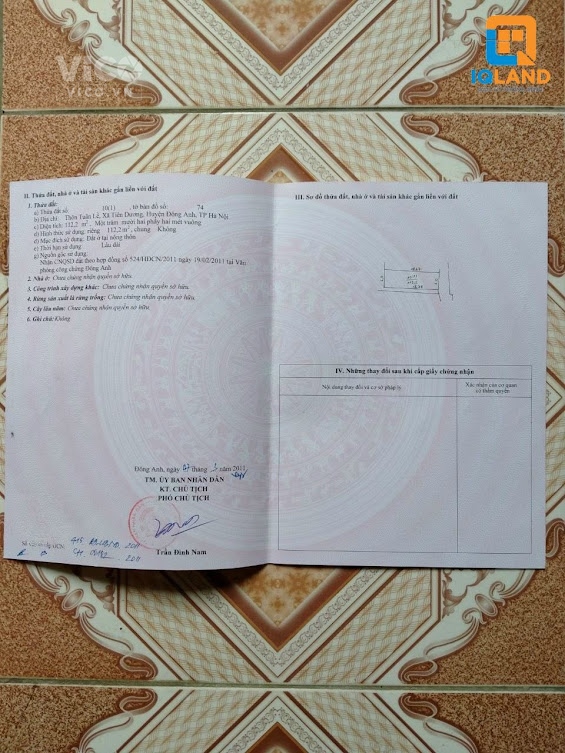 VICO
VICO.VN
IQLAND
II. Thửa đất, nhà ở và tài sản khác gắn liền với đất
1. Thửa đất:
a) Thửa đất số: 10(1) , tờ bản đồ số: 74
b) Địa chỉ: Thôn Tuân Lề, Xã Tiên Dương, Huyện Đông Anh, TP Hà Nội
c) Diện tích: 112,2 m². Một trăm mười hai phẩy hai mét vuông
d) Hình thức sử dụng: riêng 112,2 m², chung Không
đ) Mục đích sử dụng: Đất ở tại nông thôn
e) Thời hạn sử dụng: Lâu dài
g) Nguồn gốc sử dụng:
Nhận CNQSD đất theo hợp đồng số 524/HĐCN/2011 ngày 19/02/2011 tại Văn
phòng công chứng Đông Anh
2. Nhà ở: Chưa chứng nhận quyền sở hữu.
3. Công trình xây dựng khác: Chưa chứng nhận quyền sở hữu.
4. Rừng sản xuất là rừng trồng: Chưa chứng nhận quyền sở hữu.
5. Cây lâu năm: Chưa chứng nhận quyền sở hữu.
6. Ghi chú: Không
Đông Anh, ngày tháng năm 2011
TM. ỦY BAN NHÂN DÂN
KT. CHỦ TỊCH
PHÓ CHỦ TỊCH
Trần Đình Nam
Số vào sổ cấp GCN:
III. Sơ đồ thửa đất, nhà ở và tài sản khác gắn liền với đất
IV. Những thay đổi sau khi cấp giấy chứng nhận
Nội dung thay đổi và cơ sở pháp lý
Xác nhận của cơ quan
có thẩm quyền